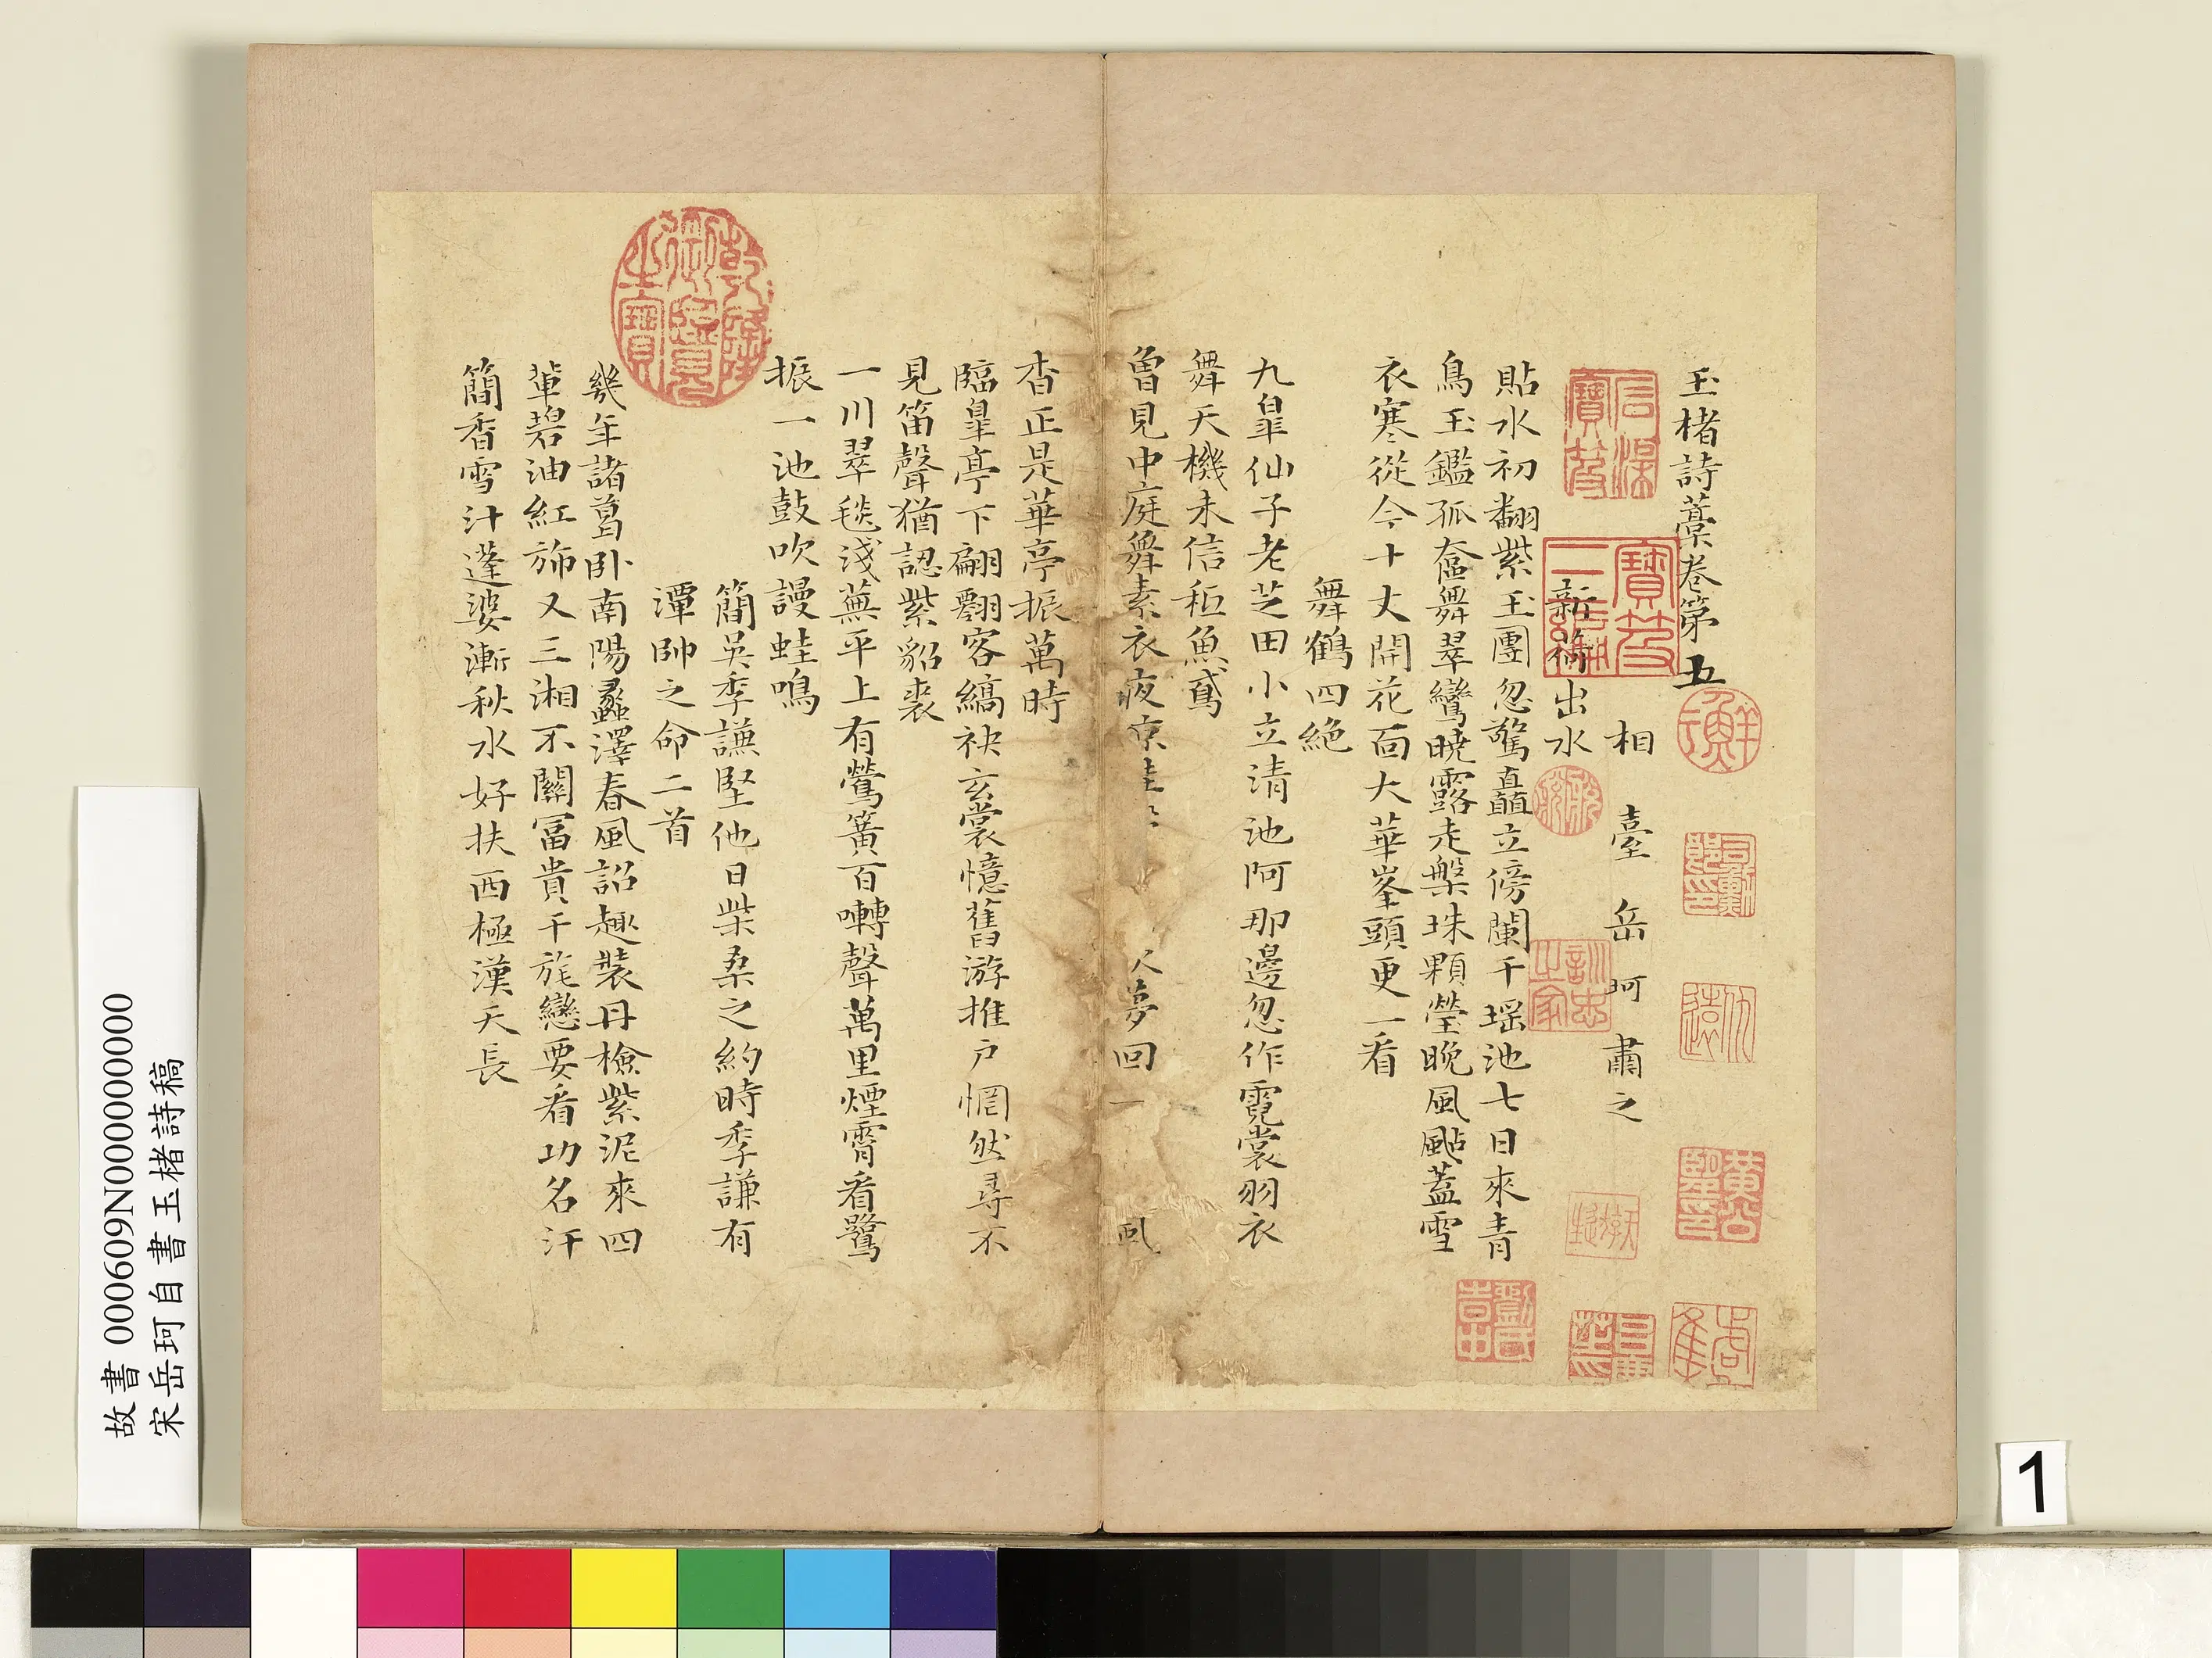 玉楮詩藁卷第五
相臺岳珂肅之
新荷出水
貼水初翻紫玉團忽驚矗立傍闌干瑶池七日來青
鳥玉鑑孤奩舞翠鸞曉露走槃珠顆瑩晚風颭蓋雪
衣寒從今十丈開花面大華峯頭更一看
舞鶴四絶
九皐仙子老芝田小立清池阿那邊忽作霓裳羽衣
舞天機未信秪魚鳶
曾見中庭舞素衣夜京 人夢回一 風
杳正是華亭振萬時
臨皐亭下翩翾客縞袂玄裳憶舊游推户惘然尋不
見笛聲猶認紫貂裘
一川翠毯淺蕪平上有鶯簧百囀聲萬里煙霄看鷺
振一池鼓吹謾蛙鳴
簡吳季謙堅他日柴桑之約時季謙有
潭帥之命二首
幾年諸葛卧南陽蠡澤春風詔趣裝丹檢紫泥來四
輩碧油紅斾又三湘不關冨貴千旄戀要看功名汗
簡香雪汁蓬婆漸秋水好扶西極漢天長
乾隆御覽之寶
故書 000609N000000000
宋岳珂自書玉楮詩稿
1